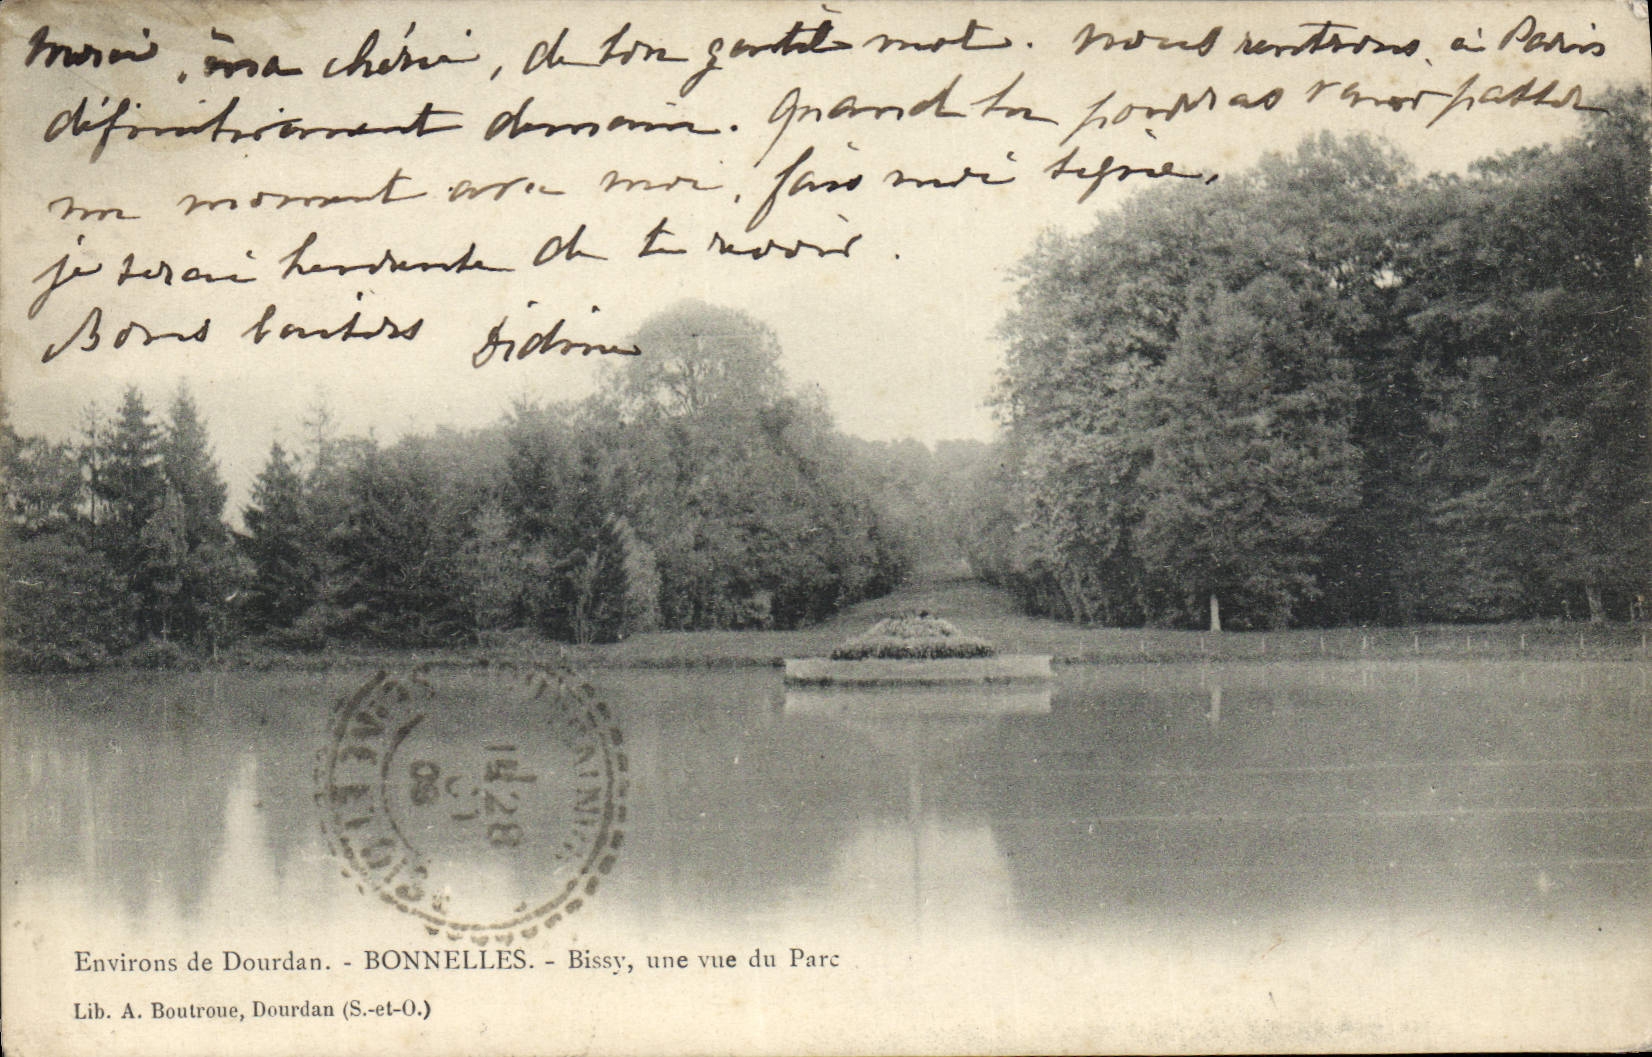 Merci, ma chérie, de ton gentil mot. Nous rentrons à Paris
définitivement demain. Quand tu pourras venir passer
un moment avec moi, fais moi signe,
je serai heureuse de te revoir.
Bons baisers Didine
14 28
08
Environs de Dourdan. - BONNELLES. - Bissy, une vue du Parc
Lib. A. Boutroue, Dourdan (S.-et-O.)